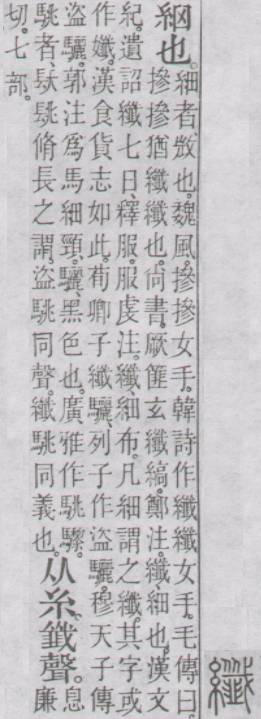 纖
細也。
細者、㪚也。魏風。摻摻女手。韓詩作纖纖女手。毛傳曰。
摻摻猶纖纖也。尙書。厥篚玄纖縞。鄭注。纖、細也。漢文
紀。遺詔纖七日、釋服。服虔注。纖、細布。凡細謂之纖。其字或
作孅。漢食貨志如此。荀卿子纖驪、列子作盜驪。穆天子傳
盜驪。郭注爲馬細頸。驪、黑色也。廣雅作駣䮫。
駣者、脩長之謂。盜駣同聲。纖駣同義也。
从糸。韱聲。
息
廉
切。七部。